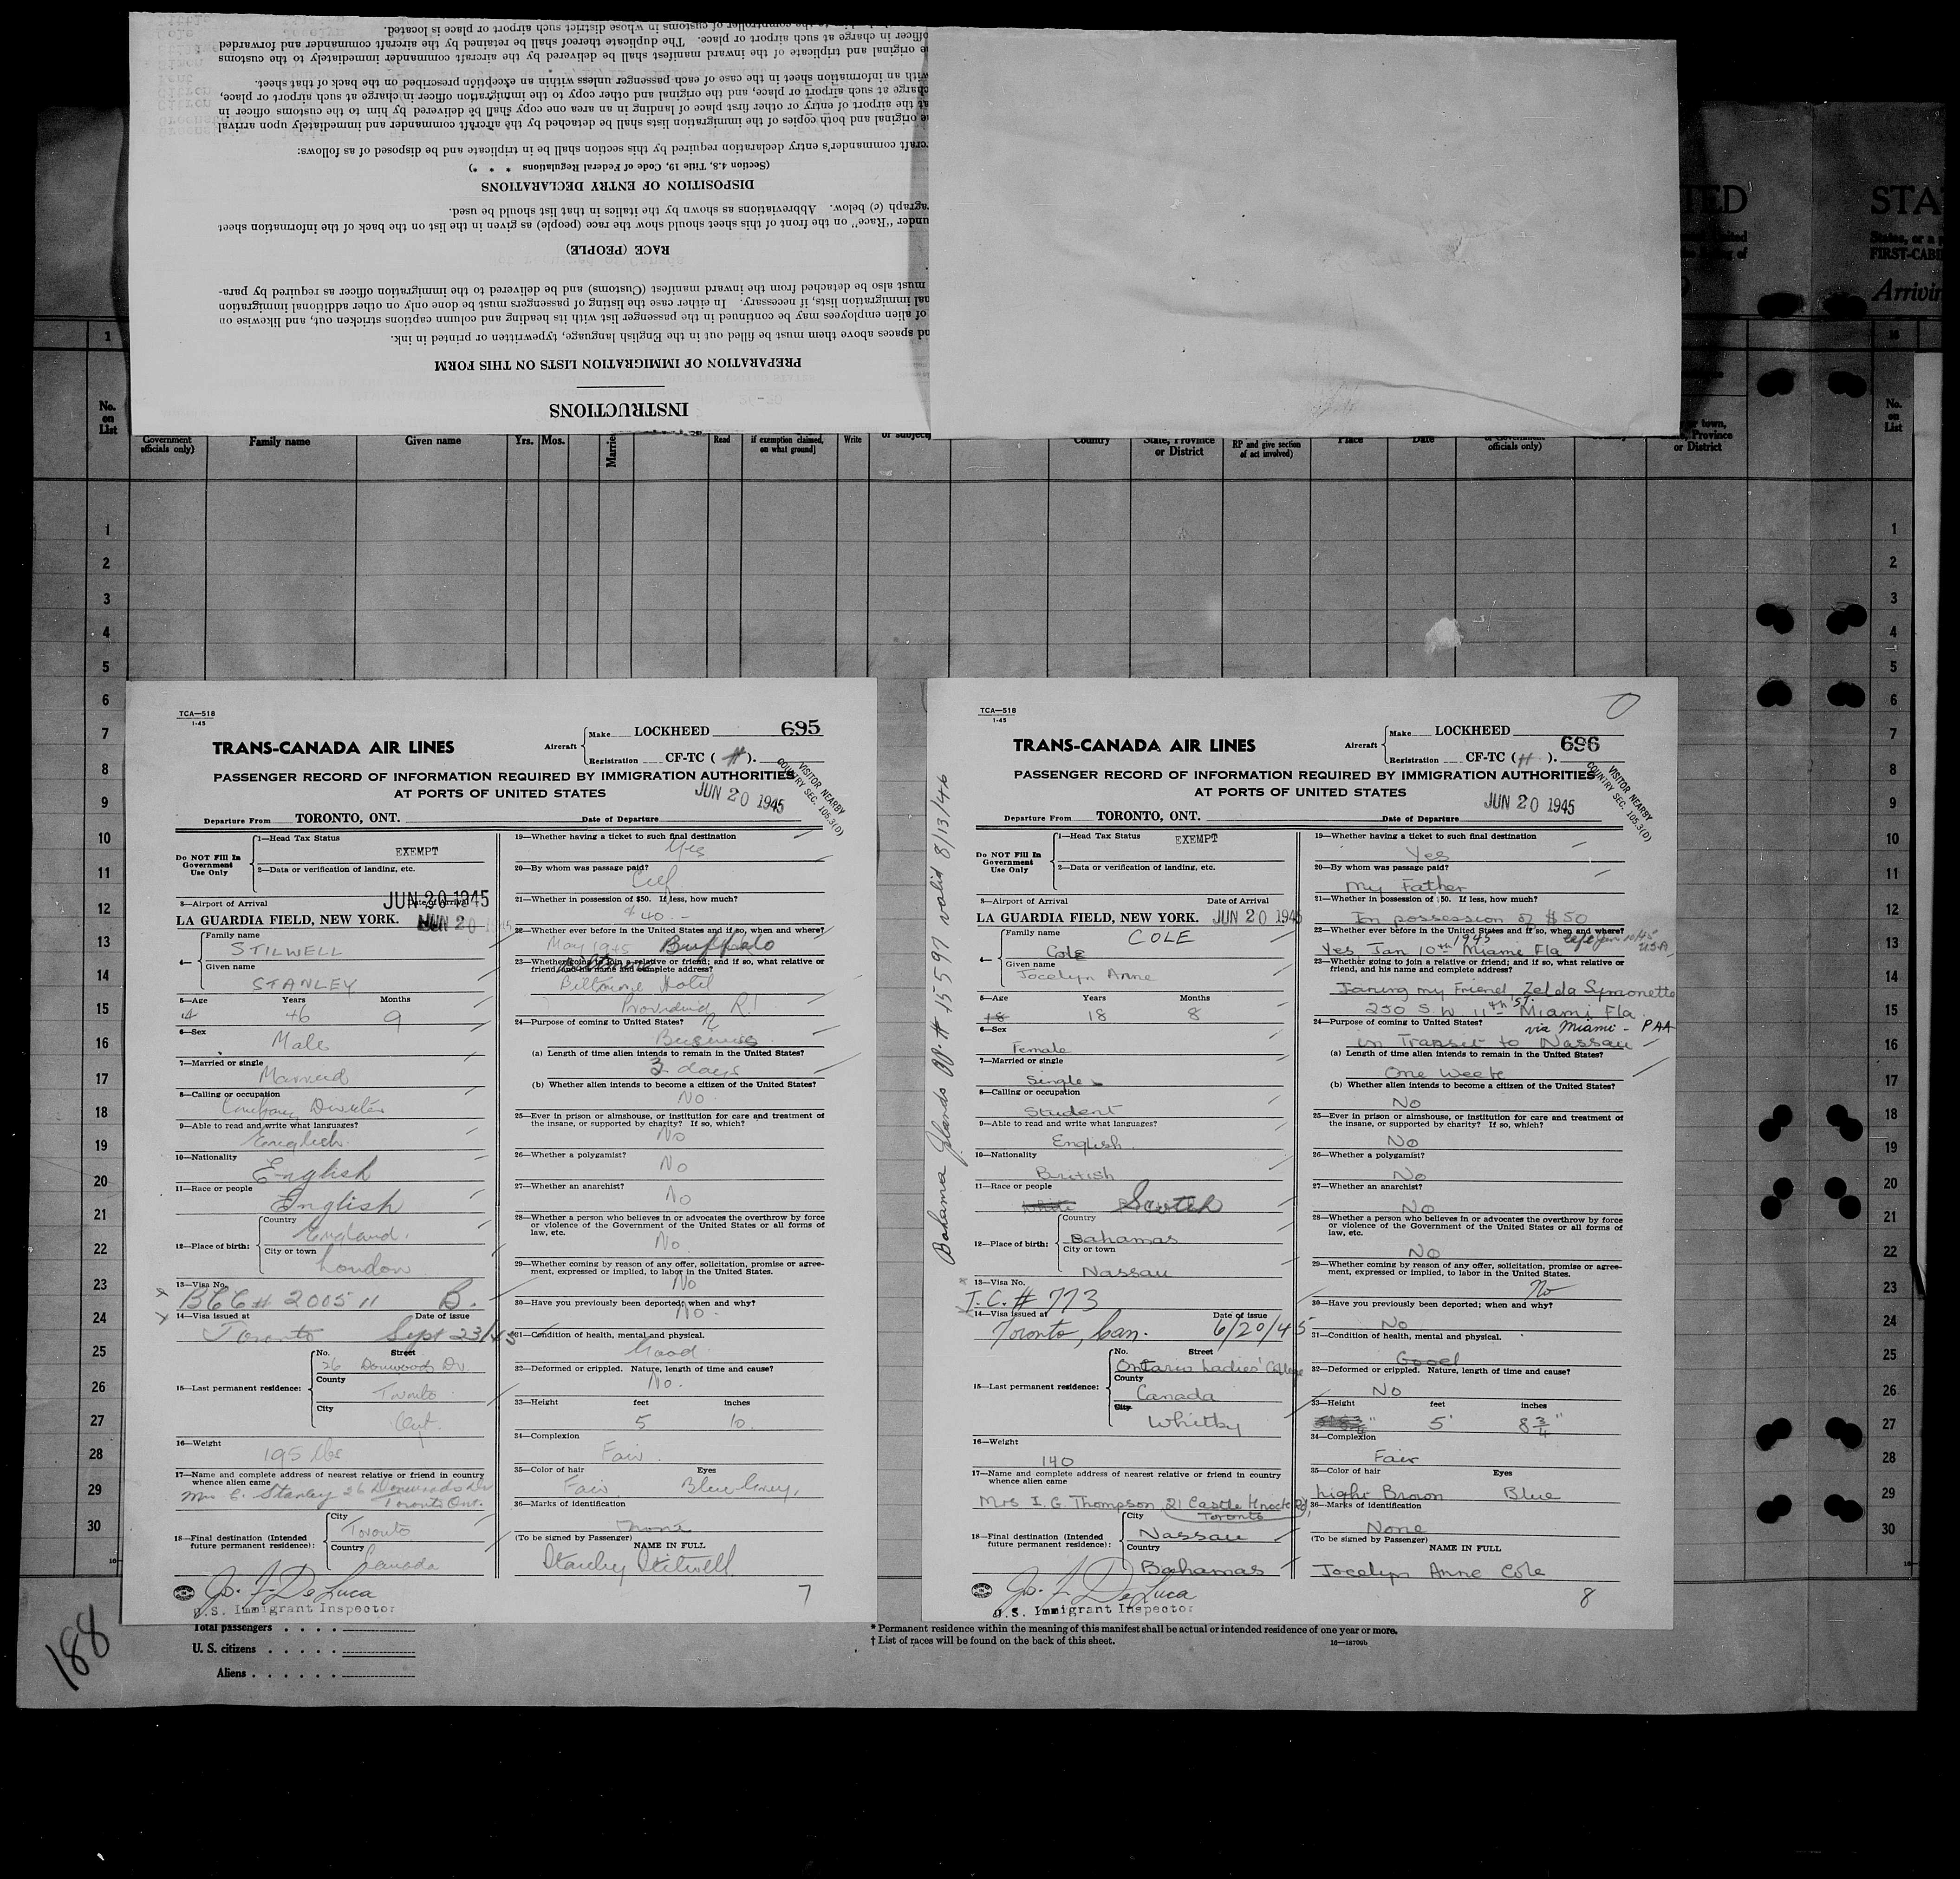 officer in charge at such airport or place. The duplicate thereof shall be retained by the aircraft commander and forwarded
to the comptroller of customs in whose district such airport or place is located.
INSTRUCTIONS
PREPARATION OF IMMIGRATION LISTS ON THIS FORM
spaces above them must be filled out in the English language, typewritten or printed in ink.
of alien employees may be continued in the passenger list with its heading and column captions stricken out, and likewise on
immigration lists, if necessary. In either case the listing of passengers must be done only on other additional immigration
must also be detached from the inward manifest (Customs) and be delivered to the immigration officer as required by para-
RACE (PEOPLE)
under "Race" on the front of this sheet should show the race (people) as given in the list on the back of the information sheet
(c) below. Abbreviations as shown by the italics in that list should be used.
DISPOSITION OF ENTRY DECLARATIONS
(Section 4.8, Title 19, Code of Federal Regulations * * *)
commander's entry declaration required by this section shall be in triplicate and be disposed of as follows:
original and both copies of the immigration lists shall be detached by the aircraft commander and immediately upon arrival
at the airport of entry or other first place of landing in an area one copy shall be delivered by him to the customs officer in
charge at such airport or place, and the original and other copy to the immigration officer in charge at such airport or place,
with an information sheet in the case of each passenger unless within an exception prescribed on the back of that sheet.
original and triplicate of the inward manifest shall be delivered by the aircraft commander immediately to the customs
STA
FIRST-CABI
Arrivin
No. on List
Government officials only)
Family name
Given name
Yrs.
Mos.
Read
if exemption claimed, on what ground]
Write
or subject
Country
State, Province or District
RP and give section of act involved)
Place
Date
officials only)
or town, Province or District
No. on List
TCA—518
1-45
TRANS-CANADA AIR LINES
Aircraft
Make LOCKHEED
695
Registration CF-TC ( H ).
PASSENGER RECORD OF INFORMATION REQUIRED BY IMMIGRATION AUTHORITIES
AT PORTS OF UNITED STATES
JUN 20 1945
VISITOR NEARBY
COUNTRY SEC. 105.3(D)
Departure From TORONTO, ONT. Date of Departure
Do NOT Fill In Government Use Only
1—Head Tax Status
EXEMPT
2—Data or verification of landing, etc.
3—Airport of Arrival Date of Arrival
JUN 20 1945
LA GUARDIA FIELD, NEW YORK. JUN 20 1945
4—
Family name
STILWELL
Given name
STANLEY
5—Age Years Months
46 9
6—Sex
Male
7—Married or single
Married
8—Calling or occupation
Company Director
9—Able to read and write what languages?
English
10—Nationality
English
11—Race or people
English
12—Place of birth:
Country
England.
City or town
London
13—Visa No.
BCC # 200511 B.
14—Visa issued at Date of issue
Toronto Sept 23/43
15—Last permanent residence:
No. Street
26 Donwoods Dr.
County
Toronto
City
Ont.
16—Weight
195 lbs
17—Name and complete address of nearest relative or friend in country whence alien came
Mrs C. Stanley 26 Donwoods Dr
Toronto Ont.
18—Final destination (Intended future permanent residence):
City
Toronto
Country
Canada
Jos. F. De Luca
U.S. Immigrant Inspector
19—Whether having a ticket to such final destination
Yes
20—By whom was passage paid?
Self
21—Whether in possession of $50. If less, how much?
$40.-
22—Whether ever before in the United States and if so, when and where?
May 1945 Buffalo
23—Whether going to join a relative or friend; and if so, what relative or friend, and his name and complete address?
Biltmore Hotel
Providence R.I
24—Purpose of coming to United States?
Business
(a) Length of time alien intends to remain in the United States?
3 days
(b) Whether alien intends to become a citizen of the United States?
No.
25—Ever in prison or almshouse, or institution for care and treatment of the insane, or supported by charity? If so, which?
No
26—Whether a polygamist?
No
27—Whether an anarchist?
No
28—Whether a person who believes in or advocates the overthrow by force or violence of the Government of the United States or all forms of law, etc.
No
29—Whether coming by reason of any offer, solicitation, promise or agreement, expressed or implied, to labor in the United States.
No
30—Have you previously been deported; when and why?
No.
31—Condition of health, mental and physical.
Good
32—Deformed or crippled. Nature, length of time and cause?
No.
33—Height feet inches
5 10.
34—Complexion
Fair.
35—Color of hair Eyes
Fair. Blue Grey.
36—Marks of identification
None
(To be signed by Passenger) NAME IN FULL
Stanley Stilwell
7
TCA—518
1-45
TRANS-CANADA AIR LINES
Aircraft
Make LOCKHEED
696
Registration CF-TC ( H ).
PASSENGER RECORD OF INFORMATION REQUIRED BY IMMIGRATION AUTHORITIES
AT PORTS OF UNITED STATES
JUN 20 1945
VISITOR NEARBY
COUNTRY SEC. 105.3(D)
Departure From TORONTO, ONT. Date of Departure
Bahama Islands PP. # 15597 valid 8/13/46
Do NOT Fill In Government Use Only
1—Head Tax Status
EXEMPT
2—Data or verification of landing, etc.
3—Airport of Arrival Date of Arrival
LA GUARDIA FIELD, NEW YORK. JUN 20 1945
4—
Family name
COLE
Cole
Given name
Jocelyn Anne
5—Age Years Months
18 18 8
6—Sex
Female
7—Married or single
Single
8—Calling or occupation
Student
9—Able to read and write what languages?
English
10—Nationality
British
11—Race or people
White Scotch
12—Place of birth:
Country
Bahamas
City or town
Nassau
13—Visa No.
T.C. # 773
14—Visa issued at Date of issue
Toronto, Can. 6/20/45
15—Last permanent residence:
No. Street
Ontario Ladies' College
County
Canada
City
Whitby
16—Weight
140
17—Name and complete address of nearest relative or friend in country whence alien came
Mrs I. G. Thompson, 21 Castle Knock Rd,
Toronto
18—Final destination (Intended future permanent residence):
City
Nassau
Country
Bahamas
Jos. F. De Luca
U.S. Immigrant Inspector
19—Whether having a ticket to such final destination
Yes
20—By whom was passage paid?
My Father
21—Whether in possession of $50. If less, how much?
In possession of $50
22—Whether ever before in the United States and if so, when and where?
Yes Jan 10th 1945 Miami Fla
U.S.A.
23—Whether going to join a relative or friend; and if so, what relative or friend, and his name and complete address?
Joning my Friend Zelda Symonette
250 S.W. 11th St. Miami Fla.
24—Purpose of coming to United States?
via Miami - PAA
in Transit to Nassau
(a) Length of time alien intends to remain in the United States?
One Week
(b) Whether alien intends to become a citizen of the United States?
No
25—Ever in prison or almshouse, or institution for care and treatment of the insane, or supported by charity? If so, which?
No
26—Whether a polygamist?
No
27—Whether an anarchist?
No
28—Whether a person who believes in or advocates the overthrow by force or violence of the Government of the United States or all forms of law, etc.
No
29—Whether coming by reason of any offer, solicitation, promise or agreement, expressed or implied, to labor in the United States.
No
30—Have you previously been deported; when and why?
No
31—Condition of health, mental and physical.
Good
32—Deformed or crippled. Nature, length of time and cause?
No
33—Height feet inches
5' 8 3/4"
34—Complexion
Fair
35—Color of hair Eyes
Light Brown Blue
36—Marks of identification
None
(To be signed by Passenger) NAME IN FULL
Jocelyn Anne Cole
8
188
Total passengers
U. S. citizens
Aliens
* Permanent residence within the meaning of this manifest shall be actual or intended residence of one year or more.
† List of races will be found on the back of this sheet.
16—18709b